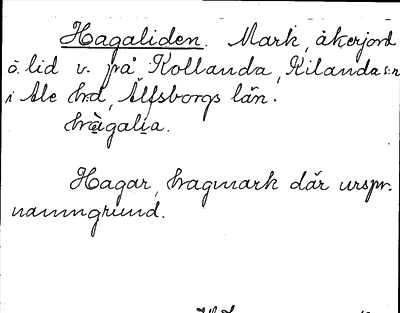 Hagaliden. Mark, åkerjord
o. lid v. på Kollanda, Kilanda s:n
i Ale hrd, Älfsborgs län.
hàgalia.
Hagar, hagmark där urspr.
namngrund.